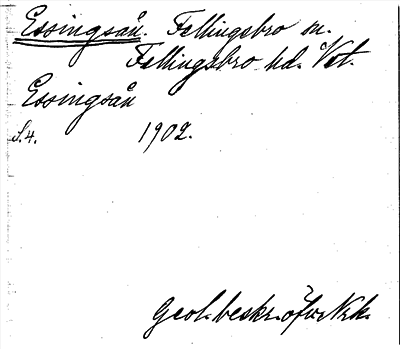 Essingsån. Fellingsbro sn.
Fellingsbro hd. Vstm.
Essingsån
S. 4. 1902.
Geol. beskr. öfver Nrk.